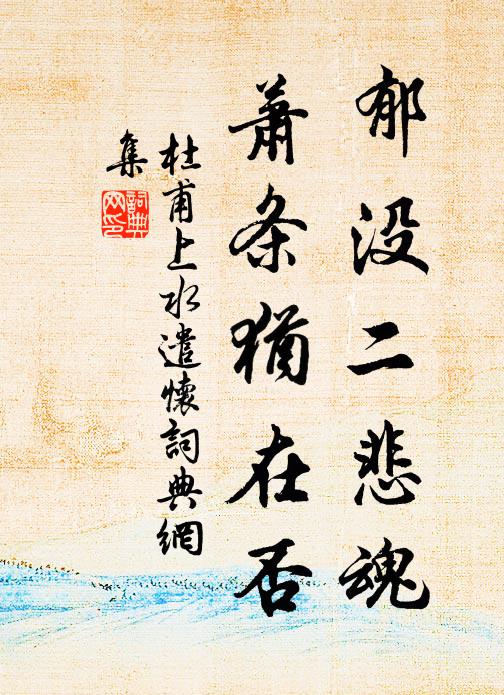 郁没二悲魂
萧条犹在否
杜甫上水遣懷詞典網
集
詞典
网印